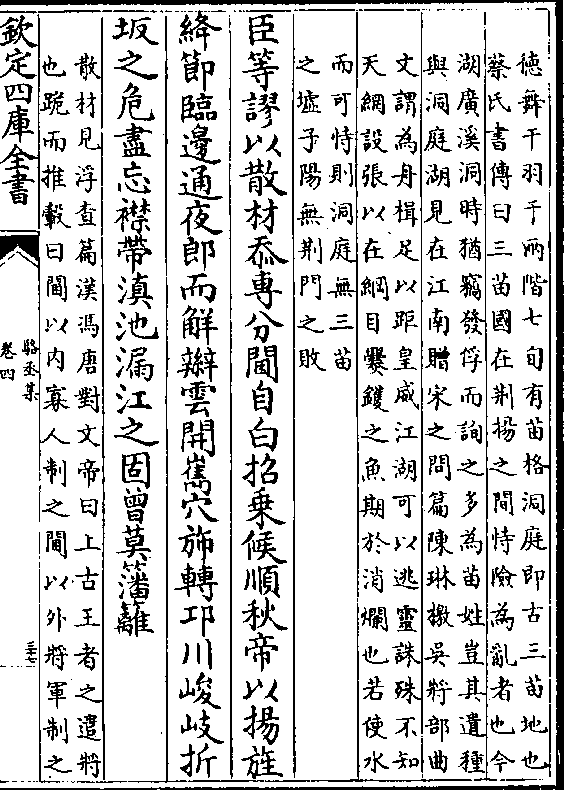 德舞干羽于兩階七旬有苗格洞庭即古三苗地也
蔡氏書傳曰三苗國在荆揚之間恃險為亂者也今
湖廣溪洞時猶竊發俘而詢之多為苗姓豈其遺種
與洞庭湖見在江南贈宋之問篇陳琳檄吳將部曲
文謂為舟楫足以距皇威江湖可以逃靈誅殊不知
天綱設張以在綱目爨鑊之魚期於消爛也若使水
而可恃則洞庭無三苗
之墟子陽無荆門之敗
臣等謬以散材忝專分閫自白招乗候順秋帝以揚旌
絳節臨邊通夜郎而解辮雲開巂穴斾轉卭川峻岐折
坂之危盡忘襟帶滇池漏江之固曾莫籓籬
散材見浮查篇漢馮唐對文帝曰上古王者之遣將
也跪而推轂曰閫以内寡人制之閫以外將軍制之
欽定四庫全書
駱丞集
卷四
三十七